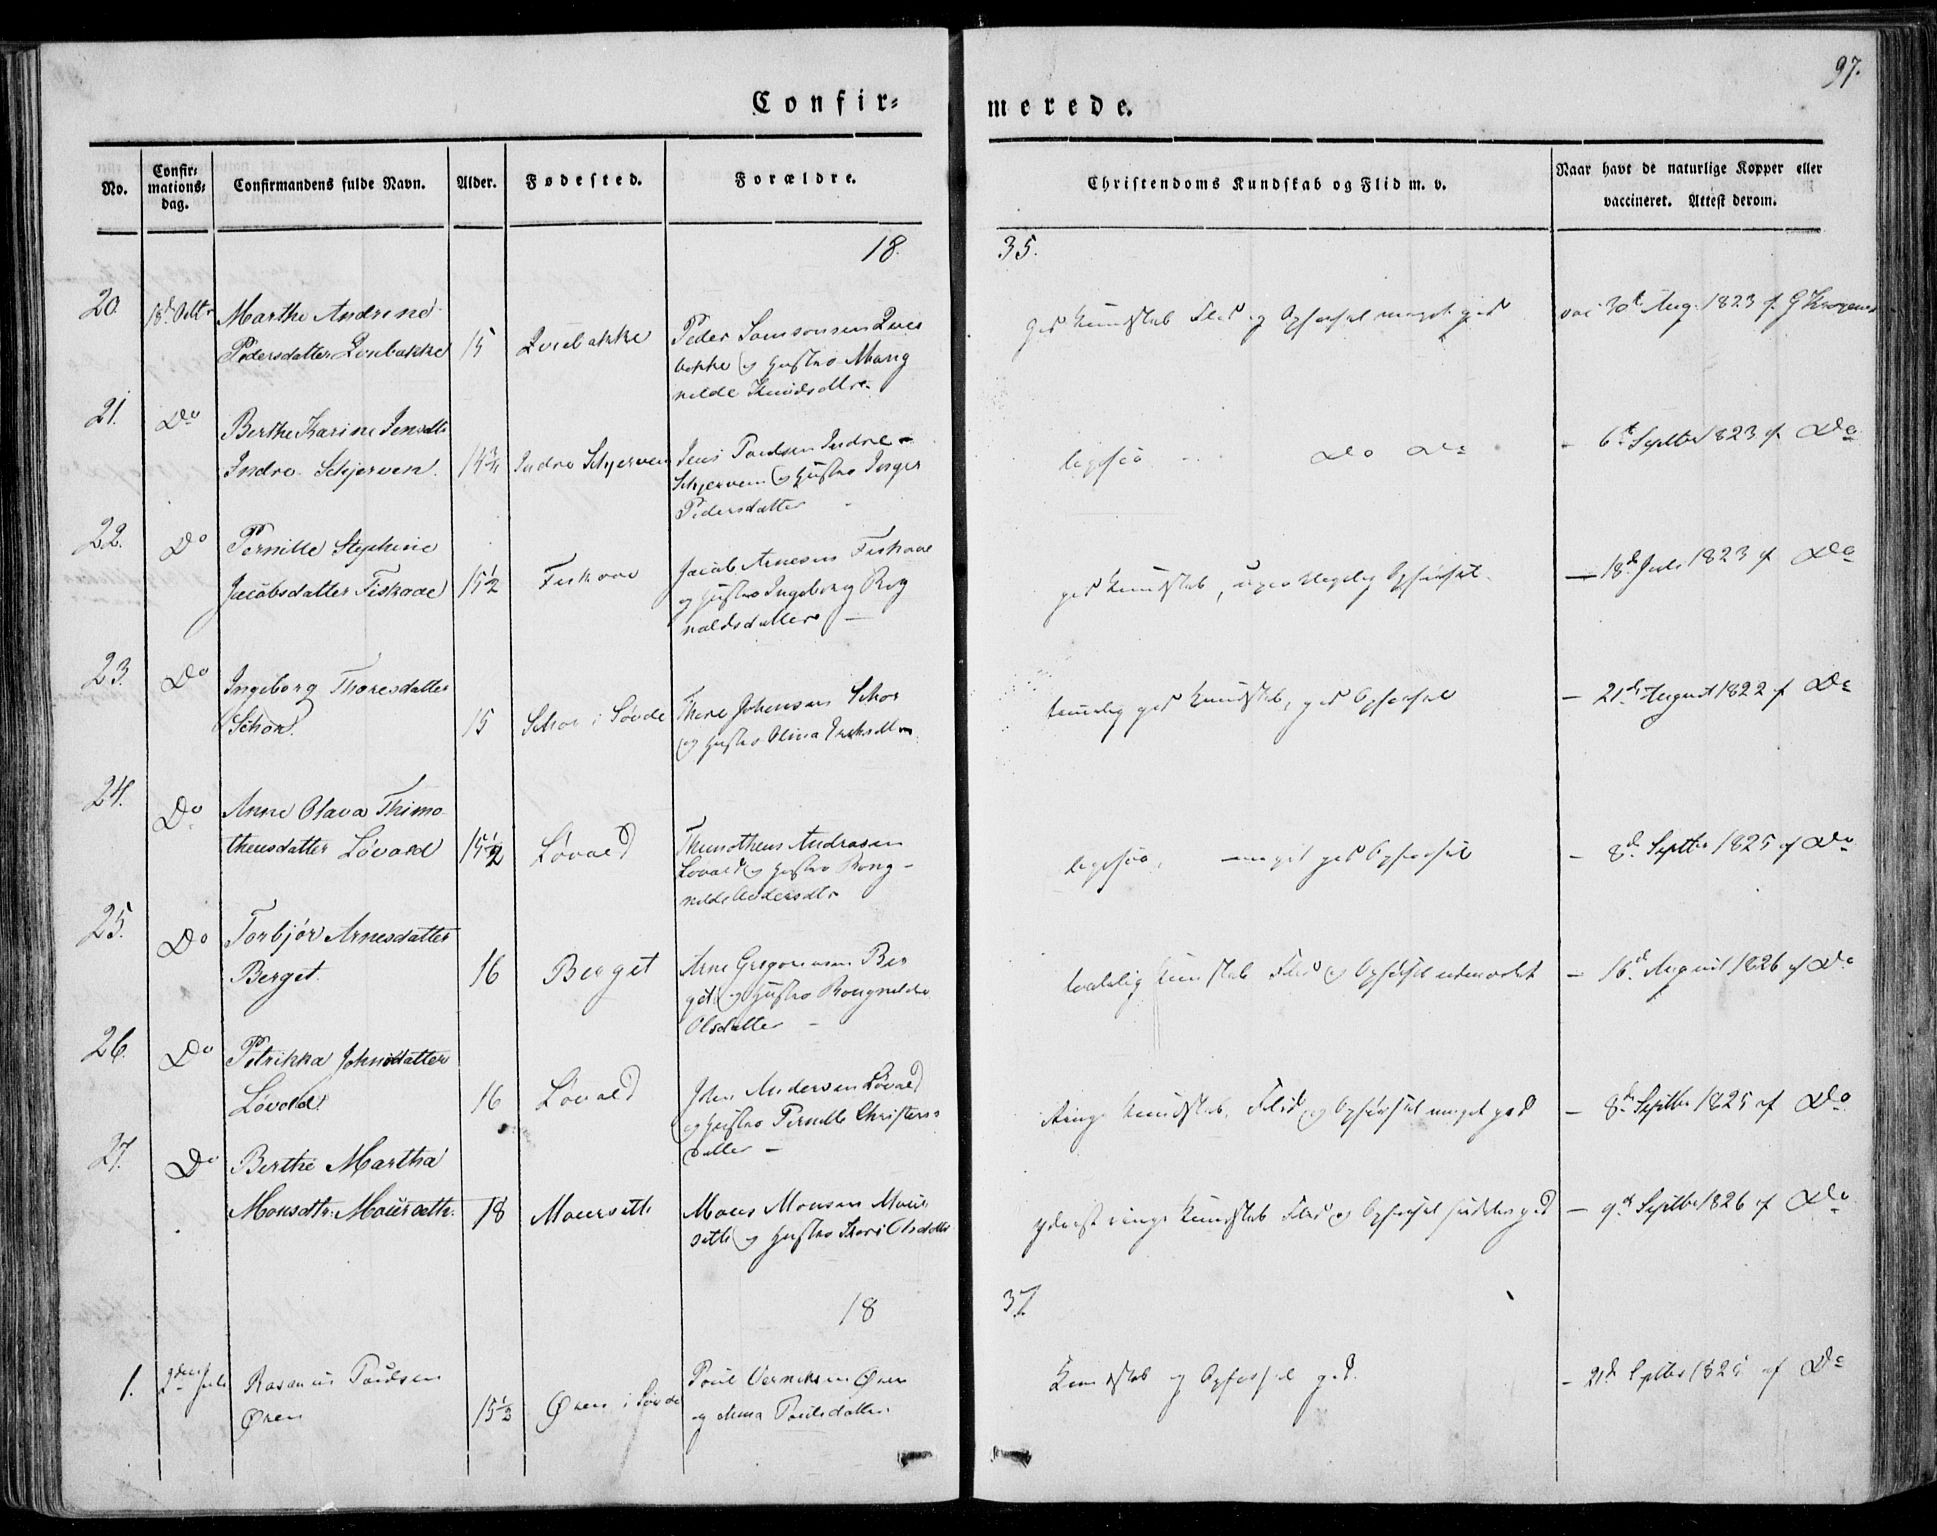 97.
Confir-
merede.
No.
Confir-
mations-
dag.
Confirmandens fulde Navn.
Alder.
Fødested.
Forældre.
Christendoms Kundskab og Flid m. v.
Naar havt de naturlige Kopper eller
vaccineret. Attest derom.
18
35.
20 Marthe Andrine
Pedersdatter 15
Peder Samsonsen
og Hustro
god Kundskab Flid og Opførsel meget god
30te Aug. 1823 af
21. Do Berthe Karine Jensdtr
Indre Schjerven Indre Schjerven
Jens Poulsen Indre
Schjerven og Hustro Inger
Pedersdatter
ligesaa Do Do
- 6te Septbr 1823 af Do
22. Do Pernille Stephine
Jacobsdatter Fiskaae 15½ Fiskaae
Jacob Arnesen Fiskaae
og Hustro Ingeborg Rog
naldsdatter
god Kundskab, Opførsel
- 18de Juli 1823 af Do
23. Do Ingeborg Thoresdatter
15 i Søvde
Thore Johensen
og Hustro Olina
temmelig god Kundskab, god Opførsel
- 21de August 1822 af Do
24. Do Anne Olava Thimo
theusdatter Løvold 15½ Løvold
Thimotheus Andrasen
Løvold og Hustro Rong
nilde
ligesaa, meget god Opførsel
- 8de Septbr 1825 af Do
25. Do Torbjør Arnesdatter
Berget. 16 Berget
Arne Gregoriusen Ber
get og Hustro Rongnilde
Olsdatter
Kundskab Flid og Opførsel udmærket
- 16de August 1826 af Do
26. Do Petrikka Johnsdatter
Løvold 16 Løvold
John Andersen Løvold
og Hustro Pernille Christens
datter
ringe Kundskab, Flid og Opførsel meget god
- 8de Septbr 1825 af Do
27. Do Berthe Martha
Monsdtr Maursætte 18 Maursette
Mons Monsen Maur
sette og Hustro Kari Olsdatter
yderst ringe Kundskab Flid og Opførsel god
- 9de Septbr 1826 af Do
18
37.
1. 2den Juli Rasmus Poulsen
Øren 15½ Øren i Søvde
Poul Øren
og Anna Poulsdatter
Kundskab og Opførsel god.
- 21de Septbr af Do